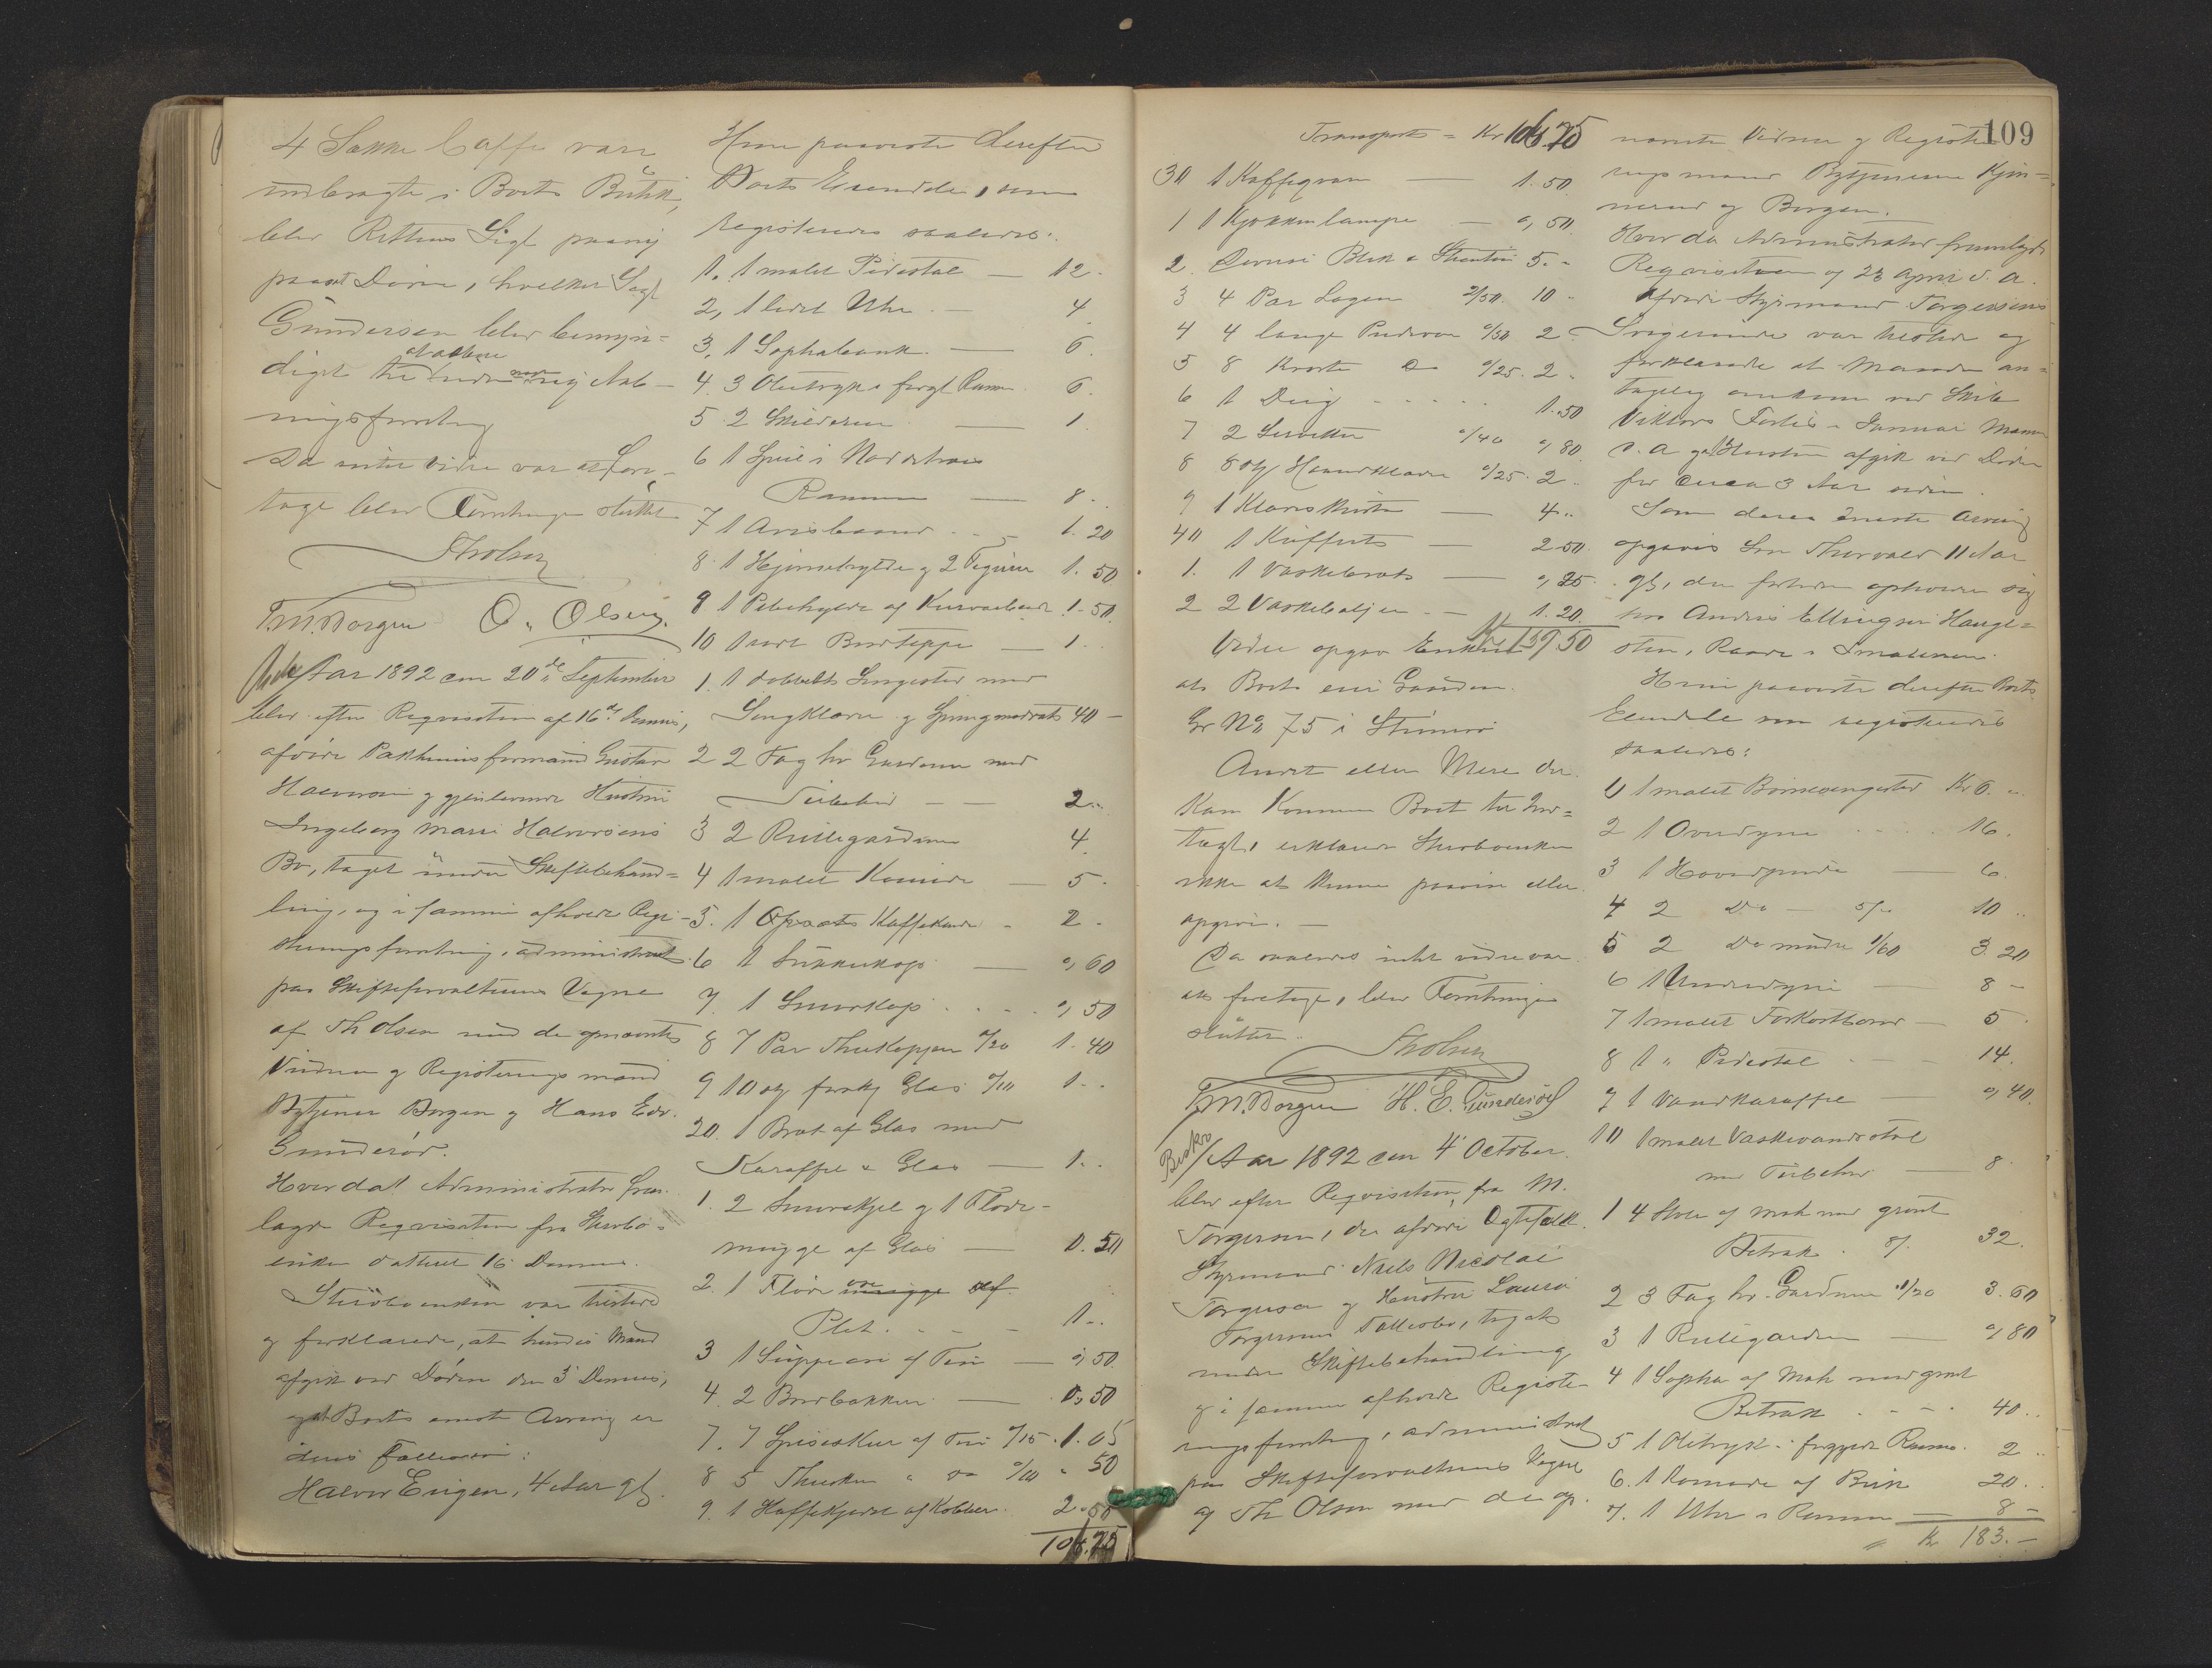 4 Sække Caffe vare
indbragte i Boets Butik,
blev Rettens Segl paany
paasat Døren, hvilket Segl
Gundersen blev bemyn-
diget til at aabne
ningsforretning
Da intet videre var at fore-
tage blev Forretningen sluttet
Th Olsen
T. M. Borgen O. Olsen.
Aar 1892 den 20de September
blev efter Reqvisition af 16de Dennes,
afdøde Pakhuusformand Gustav
Halvorsen og gjenlevende Hustru
Ingeborg Marie Halvorsens
Bo, taget under Skiftebehand=
ling, og i samme afholdt Regi-
streringsforretning, administreret
paa Skifteforvalterens Vegne
af Th Olsen med de opnævnte
Vidner og Registerings mænd
Bytjener Borgen og Hans Edv.
Gunderød.
Hvorda Administrator frem-
lagde Reqvisition fra Sterbo-
enken dateret 16 Dennes.
Sterboenken var tilstede
og forklarede, at hendes Mand
afgik ved Døden den 3' Dennes,
og at Boets eneste Arving er
deres Fællesøn:
Halvor Eugen, 4 Aar gl.
Hun paaviste derefter
Boets Eiendele, som
registeredes saaledes:
1. 1 malet Pidestal — 12 -
2, 1 lidet Uhr — 4
3, 1 Sophabænk — 6.
4. 3 Olietryk i forgl Ramme 6.
5 2 Skilderier — 1
6 1 Speil i Nøddetræes
Ramme — 8 -
7 1 Avisbaand 1. 20
8. 1 Hjørnehylde og 2 Figurer 1. 50
9 1 Pibehylde af Kurvarbeide 1. 50
10 1 rødt Bordteppe — 1 -
1. 1 dobbelts Sengested med
Sengklæder og Springmadrats 40 -
2 2 Fag hv Gardiner med
Tilbehør — 2 -
3 2 Rullegardiner 4
4 1 malet Komode — 5 -
5. 1 Opsats Kaffekande - 2 -
6 1 Sukkerkop — 0, 60
7. 1 Smørkop 0, 50
8 7 Par Theekopper 0/20 1. 40
9 10 stk forskj Glas 0/10 1 -
20. 1 Bret af Glas med
Karaffel & Glas — 1 -
1. 2 Smørskjel og 1 Fløde-
mugge af Glas — 0. 50
2. 1 Fløde mugge af
Plet. 1 -
3 1 Suppeøse af Tin — 0, 50.
4. 2 Brødbakker — 0, 50
7. 7 Spiseskeer af Tin 0/15. 1. 05
8 5 Theskeer " do 0/10 " 50
9. 1 Kaffekjedel af Kobber 2. 50
106.75
109
Transport = Kr 106.75
30 1 Kaffeqvæn — 1. 50
1 1 Kjøkkenlampe — 0, 50
2. Diverse Blik & Stentøi 5. -
3 4 Par Lagen 2/50. 10 -
4 4 lange Pudevar 0/50 2 -
5 8 korte Do 0/25. 2 -
6 1 Dug 1. 50
7 2 Servietter 0/40 0, 80
8 8 stk Haandklæder 0/25. 2 -
9 1 Klædeskiste — 4 -
40 1 Kuffert — 2. 50.
1. 1 Vaskebræt — 0, 25
2 2 Vaskebaljer — 1. 20.
Kr 139.50
Videre opgav Enken
at Boet eier Gaarden
Gr No 75 i
Andet eller Mere der
kan komme Boet til Ind=
tægt, erklærede Sterboenken
ikke at kunne paavise eller
opgive. —
Da saaledes intet videre var
at foretage, blev Forretningen
sluttet.
Th Olsen
T. M. Borgen H. E. Gunderød
Aar 1892 den 4' October.
blev efter Reqvisition fra M.
Torgersen, de afdøde Ægtefolk.
Styrmand Niels Nicolai
Torgersen og Hustru Laura
Torgersens Fællesbo, taget
under Skiftebehandling
og i samme afholdt Registe-
ringsforretning, administreret
paa Skifteforvalterens Vegne
af Th Olsen med de op-
nævnte Vidner og Registe-
rings mænd Bytjenerne Kjøn=
nerød og Borgen.
Hvorda Administrator fremlagde
Reqvisitionen af 23 April d. A.
Afdøde Styrmand Torgersens
Svigerinde var tilstede og
forklarede at Manden an=
tagelig omkom ved Skib
Viktors Forlis i Januar Maaned
d. A og at Hustruen afgik ved Døden
for circa 3 Aar siden.
Som deres eneste Arving
opgaves Søn Thorvald 11 Aar
gl, der fortiden opholder sig
hos Andreas Ellingsen Hauge=
sten, Raade i Smalenene.
Hun paaviste derefter Boets
Eiendele som registeredes
saaledes:
1 1 malet Børnesengested Kr 6. -
2 1 Overdyne 16.
3 1 Hovedpude — 6
4 2 Do — 5/- 10 -
5 2 Do mindre 1/60 3. 20
6 1 Underdyne — 8 -
7 1 malet Forkortbord — 5
8 1 " Pidestal — 14.
9 1 Vandkaraffel — 0, 40.
10 1 malet Vaskevandsstol
med Tilbehør — 8
1 4 Stole af mah med grønt
Betræk. 8/. 32.
2 3 Fag hv. Gardiner 1/20 3. 60
3 1 Rullegardin — 0, 80
4 1 Sopha af Mah med grønt
Betræk 40 -
5 1 Olietryk i forgyldt Ramme. 2 -
6. 1 Komode af Birk 20 -
7. 1 Uhr i Ramme — 8 -
Kr 183. -